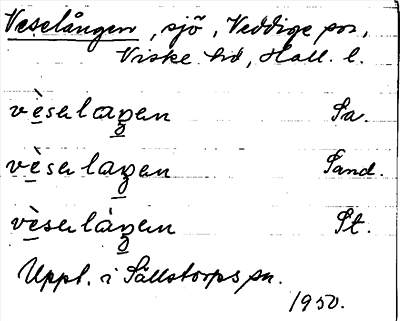 Veselången, sjö, Veddige sn,
Viske hd, Hall. l.
vèselaŋen Sa.
vèselaŋen Sand.
vèselàŋen St.
Uppt. i Sällstorps sn.
1950.